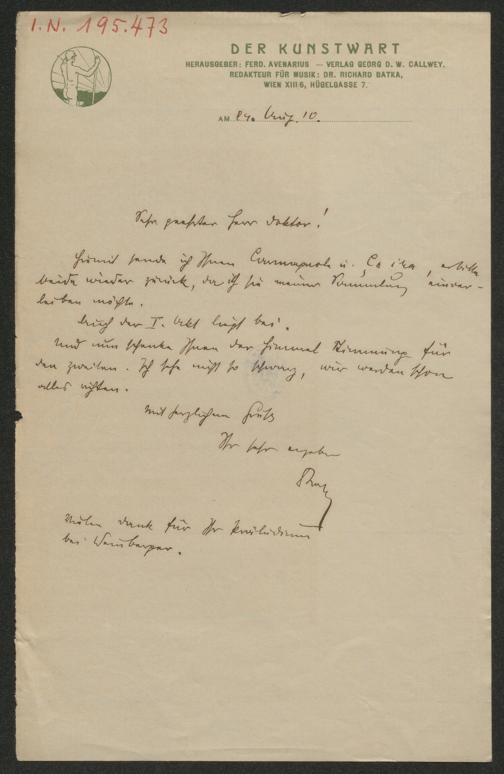 I.N. 195.473
DER KUNSTWART
HERAUSGEBER: FERD. AVENARIUS — VERLAG GEORG D. W. CALLWEY.
REDAKTEUR FÜR MUSIK: DR. RICHARD BATKA,
WIEN XIII/6, HÜGELGASSE 7.
AM 24. Aug. 10.
Sehr geehrter Herr Doktor!
Hiemit sende ich Ihnen Carmagnole u. Ça ira, erbitte
beide wieder zurück, da ich sie meiner Sammlung einver-
leiben möchte.
Auch der I. Akt liegt bei.
Und nun schenke Ihnen der Himmel Stimmung für
den zweiten. Ich sehe nicht so schwarz, wir werden schon
alles richten.
Mit herzlichem Gruß
Ihr sehr ergeben
Batka
Vielen Dank für Ihr Präludium
bei Weinberger.